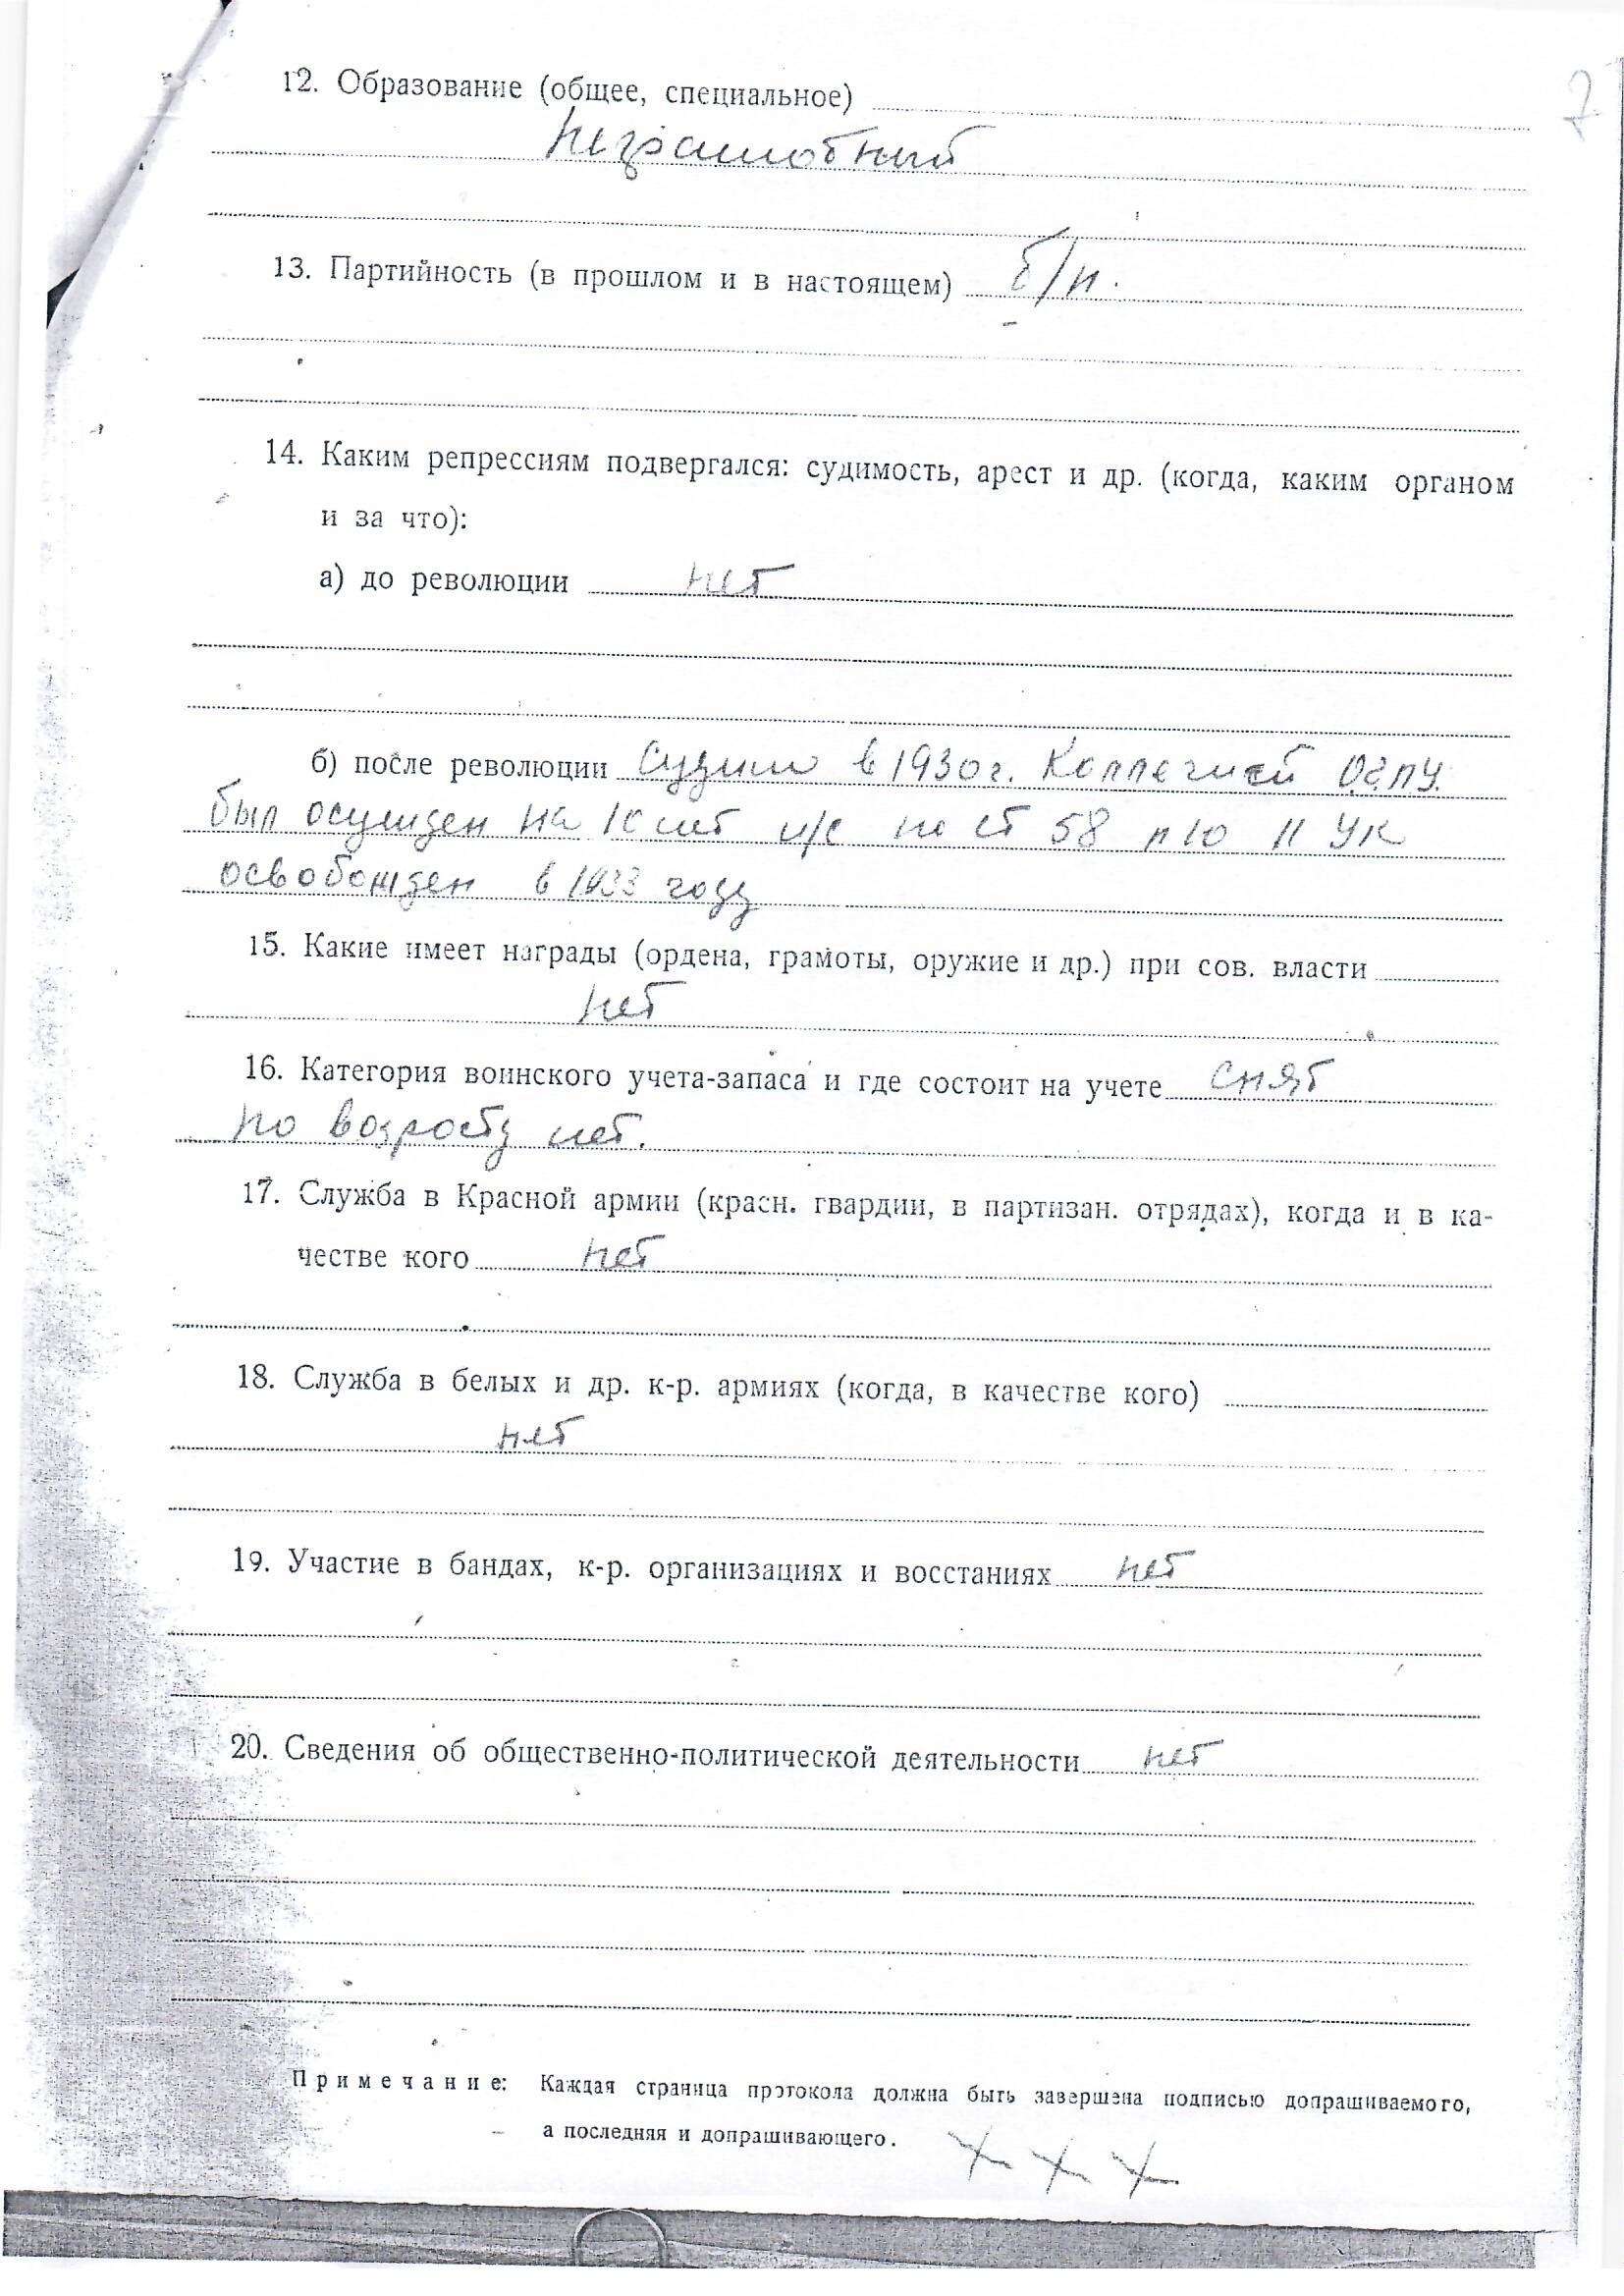 7
12. Образование (общее, специальное)
неграмотный
13. Партийность (в прошлом и в настоящем) б/п.
14. Каким репрессиям подвергался: судимость, арест и др. (когда, каким органом
и за что):
а) до революции нет
б) после революции Судим в 1930 г. Коллегией ОГПУ.
был осужден на 10 лет и/с по ст 58 п 10 11 УК
освобожден в 1933 году
15. Какие имеет награды (ордена, грамоты, оружие и др.) при сов. власти
нет
16. Категория воинского учета-запаса и где состоит на учете снят
по возросту нет.
17. Служба в Красной армии (красн. гвардии, в партизан. отрядах), когда и в ка-
честве кого нет
18. Служба в белых и др. к-р. армиях (когда, в качестве кого)
нет
19. Участие в бандах, к-р. организациях и восстаниях нет
20. Сведения об общественно-политической деятельности нет
Примечание: Каждая страница протокола должна быть завершена подписью допрашиваемого,
а последняя и допрашивающего.
х х х